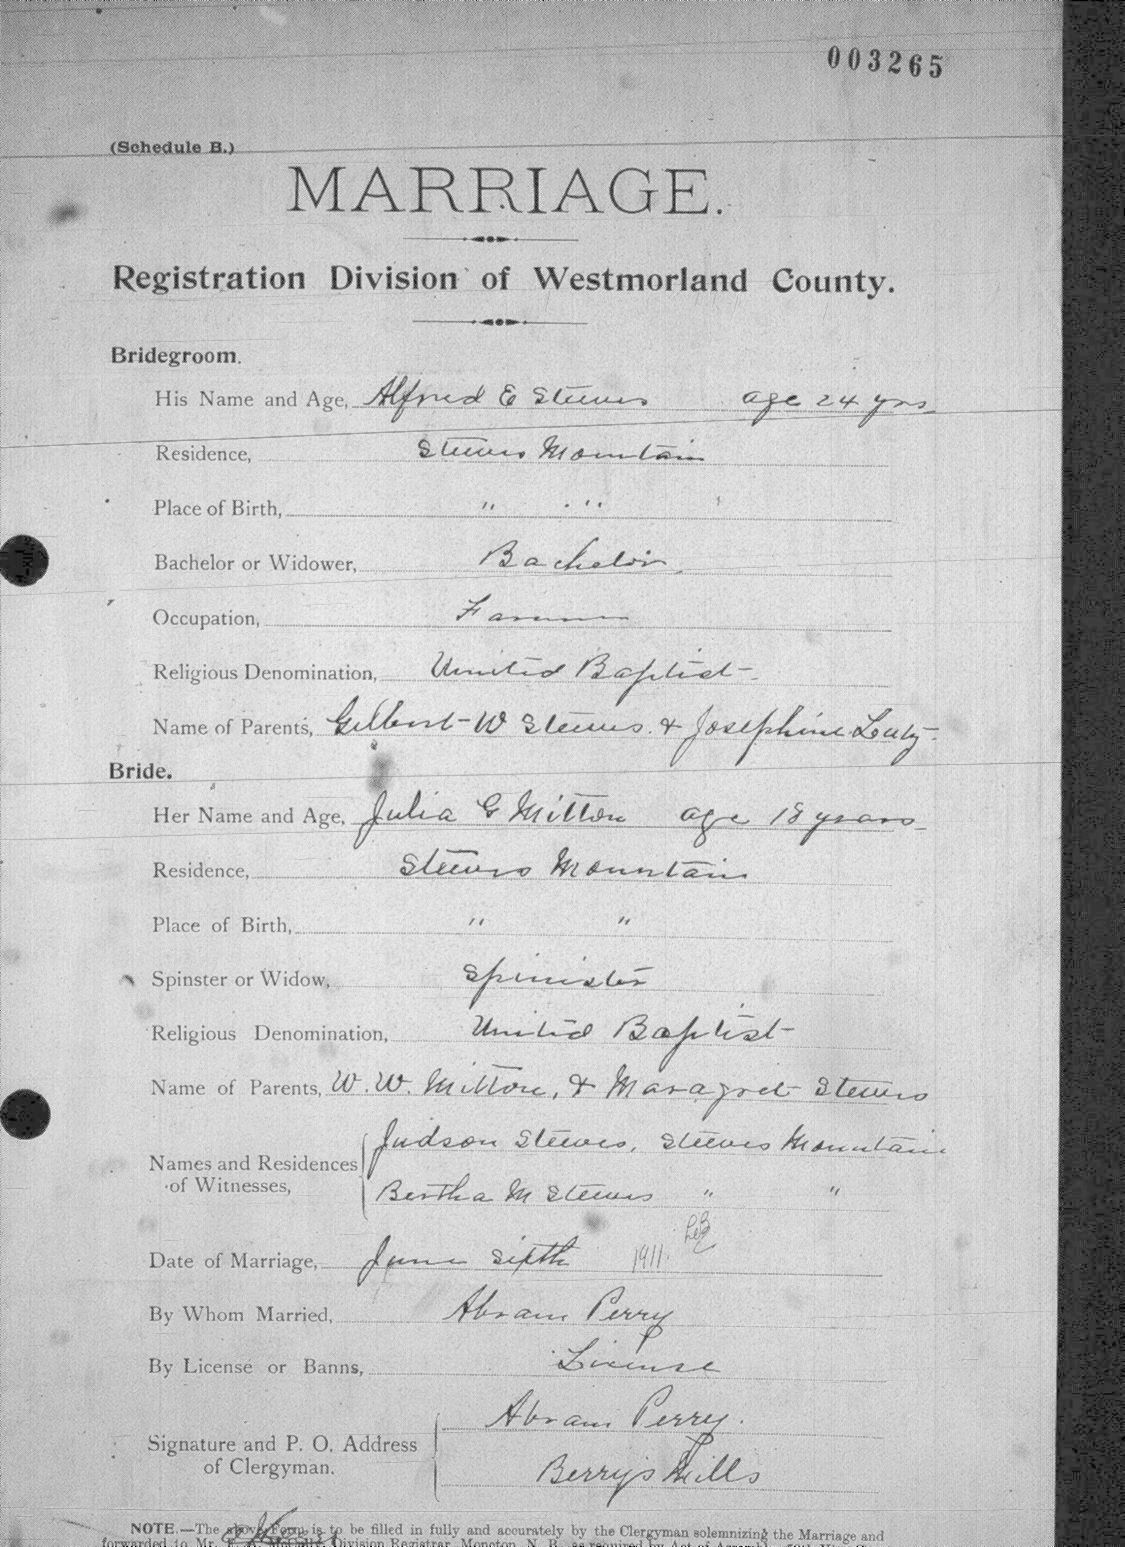 003265
(Schedule B.)
MARRIAGE.
Registration Division of Westmorland County.
Bridegroom.
His Name and Age, Alfred E Steeves age 24 yrs
Residence, Steeves Mountain
Place of Birth, " "
Bachelor or Widower, Bachelor
Occupation, Farmer
Religious Denomination, United Baptist
Name of Parents, Gilbert W Steeves & Josephine Luty
Bride.
Her Name and Age, Julia G Mitton age 18 years
Residence, Steeves Mountain
Place of Birth, " "
Spinster or Widow, Spinister
Religious Denomination, United Baptist
Name of Parents, W. W. Mitton, & Maragret Steeves
Judson Steeves, Steeves Mountain
Names and Residences
of Witnesses,
Bertha M Steeves " "
Date of Marriage, June sixth 1911.
By Whom Married, Abram Perry
By License or Banns, License
Abram Perry.
Signature and P. O. Address
of Clergyman.
Berry's Mills
NOTE.—The above Form is to be filled in fully and accurately by the Clergyman solemnizing the Marriage and
forwarded to Mr. Division Registrar, Moncton, N. B. as required by Act of